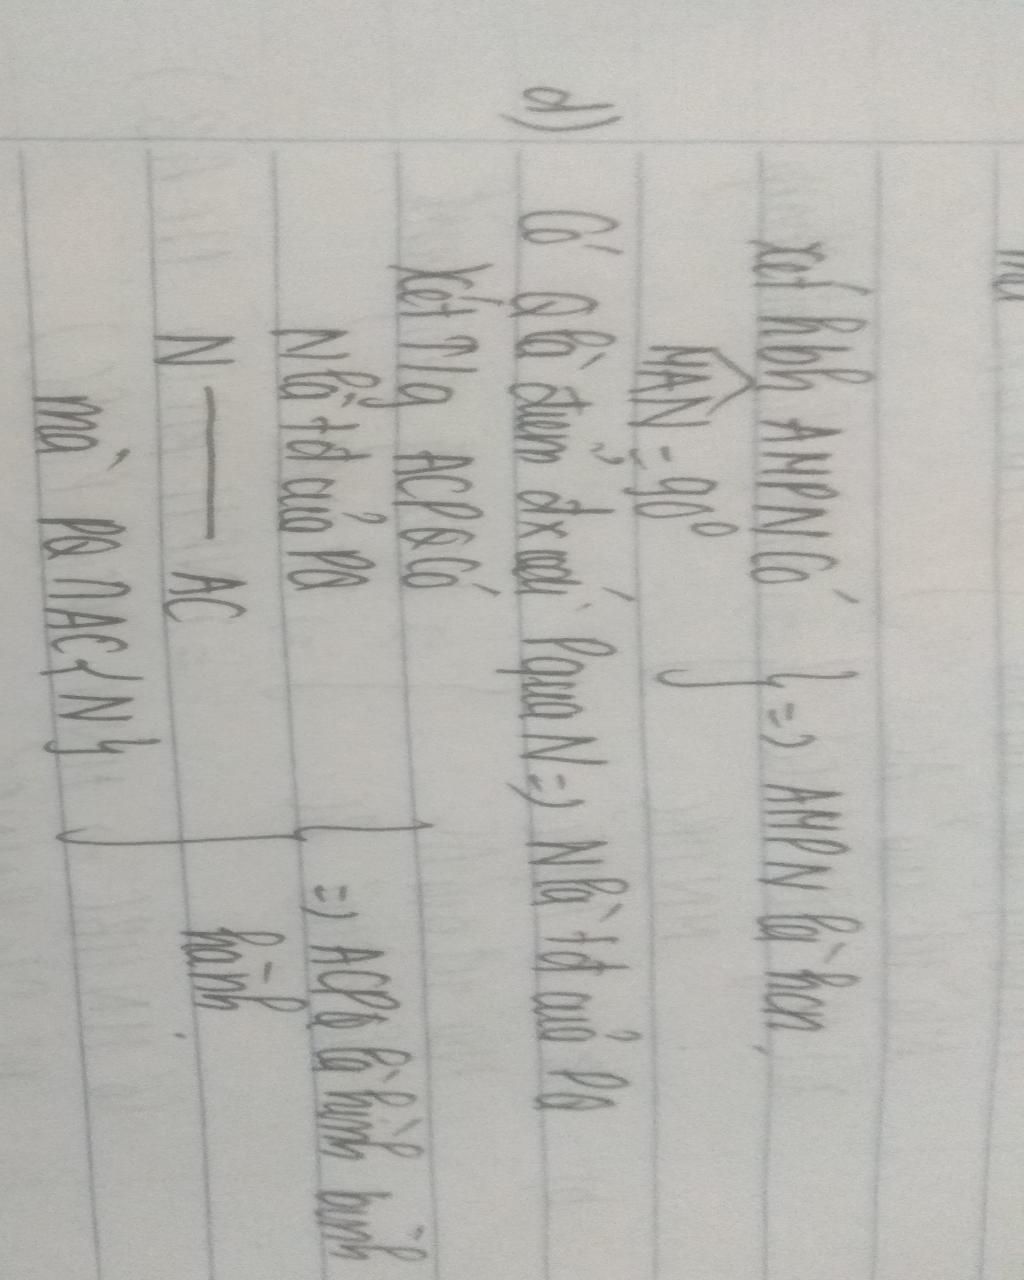 Xét hbh AMPN Có } => AMPN là hcn
MAN = 90°
d) Có Q là điểm đx với P qua N => N là tđ của PQ
Xét T/g ACPQ Có
N là tđ của PQ } => ACPQ là hình bình
N — AC hành
mà PQ ∩ AC {N}